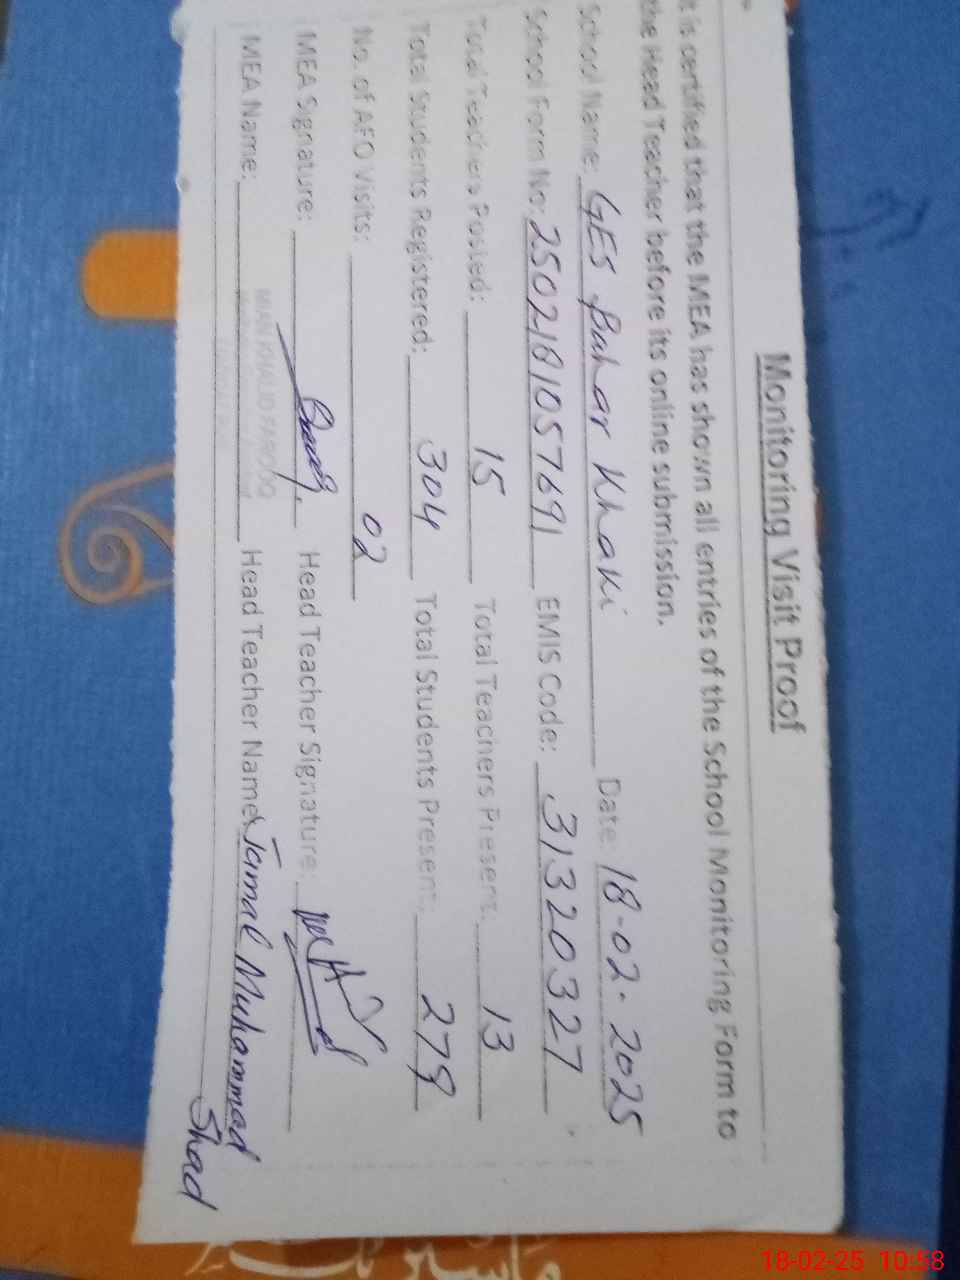 Monitoring Visit Proof
It is certified that the MEA has shown all entries of the School Monitoring Form to
the Head Teacher before its online submission.
School Name: GES Buhar Khaki Date: 18-02-2025
School Form No: 2502181057691 EMIS Code: 31320327
Total Teachers Posted: 15 Total Teachers Present: 13
Total Students Registered: 304 Total Students Present: 279
No. of AEO Visits: 02
MEA Signature: Head Teacher Signature:
MEA Name: MIAN KHALID FAROOQ Head Teacher Name: Jamal Muhammad
Shad
18-02-25 10:58